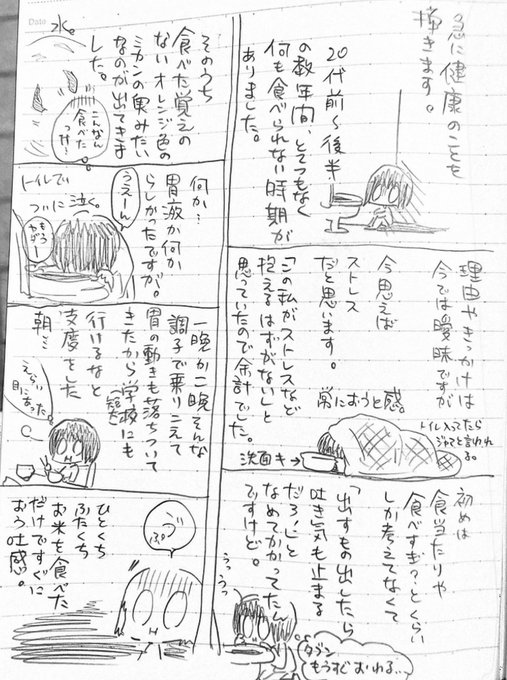 急に健康のことを
描きます。
20代前〜後半
の数年間、とてつもなく
何も食べられない時期が
ありました。
理由やきっかけは
今では曖昧ですが
今思えば
ストレス
だと思います。
「この私がストレスなど
抱えるはずがない」と
思っていたので余計でした。
常におうと感。
トイレ入ってたら
洗面キ→
初めは
食当たりや
食べすぎ?とくらい
しか考えてなくて
「出すもの出したら
吐き気も止まる
だろ!」と
なめてかかってたん
ですけど。
うっうっ
タブン
もうすぐおわる…
水。
そのうち
食べた覚えの
ないオレンジ色の
ミカンの実みたい
なのが出てきま
した。
こんなん
食べた
っけ…
何か…
胃液か何か
らしかったですが。
トイレでい
ついに泣く。
うえーん
もうヤダー
一晩か二晩そんな
調子で乗りこえて
胃の動きも落ちついて
きたから学校にも
行けるなと
支度をした
朝…
えらい
目にあった。
ひとくち
ふたくち
お米を食べた
だけですぐに
おう吐感。
うっぷ